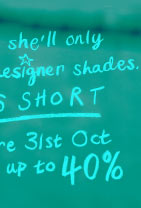 she'll only
designer shades.
S SHORT
re 31st Oct
up to 40%